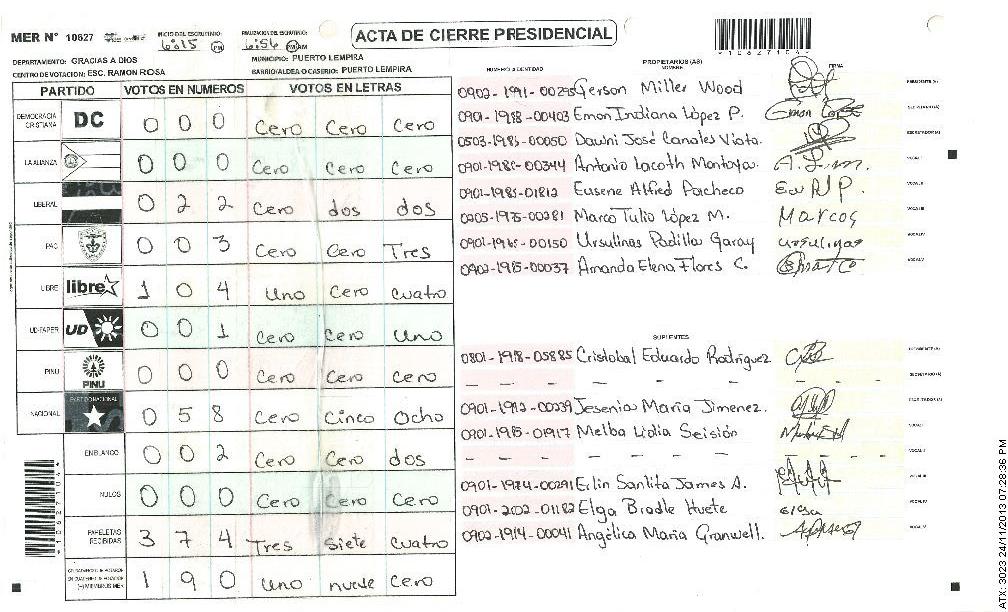 MER N° 10627
INICIO DEL ESCRUTINIO: 6:15 PM
FINALIZACION DEL ESCRUTINIO: 6:54 PM AM
ACTA DE CIERRE PRESIDENCIAL
*10627104*
DEPARTAMENTO: GRACIAS A DIOS
MUNICIPIO: PUERTO LEMPIRA
CENTRO DE VOTACION: ESC. RAMON ROSA
BARRIO/ALDEA O CASERIO: PUERTO LEMPIRA
PARTIDO VOTOS EN NUMEROS VOTOS EN LETRAS
DEMOCRACIA CRISTIANA DC 0 0 0 Cero Cero Cero
LA ALIANZA 0 0 0 Cero Cero Cero
LIBERAL 0 2 2 Cero dos dos
PAC 0 0 3 Cero Cero Tres
LIBRE libre 1 0 4 Uno Cero cuatro
UD-FAPER UD 0 0 1 Cero Cero Uno
PINU PINU 0 0 0 Cero Cero Cero
NACIONAL PARTIDO NACIONAL 0 5 8 Cero Cinco Ocho
EN BLANCO 0 0 2 Cero Cero dos
NULOS 0 0 0 Cero Cero Cero
PAPELETAS RECIBIDAS 3 7 4 Tres siete cuatro
(+) MIEMBROS MER 1 9 0 Uno nueve cero
*10627104*
PROPIETARIOS (AS)
NUMERO IDENTIDAD NOMBRE FIRMA
0902-1991-00295 Gerson Miller Wood PRESIDENTE (A)
0901-1988-00403 Emon Indiana López P. SECRETARIO (A)
0503-1985-00050 Dawni José Canales Vista. ESCRUTADOR (A)
0901-1986-00344 Antonio Lacoth Montoya. A. L. m. VOCAL I
0901-1985-01812 Eusene Alfred Pacheco VOCAL II
0205-1975-00281 Marco Tulio López M. Marcos VOCAL III
0901-1965-00150 Ursulinas Padilla Garay VOCAL IV
0902-1985-00037 Amanda Elena Flores C. VOCAL V
SUPLENTES
0801-1978-05885 Cristobal Eduardo Rodriguez PRESIDENTE (A)
— — — — — — — — SECRETARIO (A)
0901-1982-00239 Jesenia Maria Jimenez. ESCRUTADOR (A)
0901-1985-01917 Melba Lidia Seisión VOCAL I
— — — — — — — — VOCAL II
0901-1974-00291 Erlin Santita James A. VOCAL III
0901-2002-01182 Elga Brodle Huete elga VOCAL IV
0902-1914-00041 Angélica Maria Granwell. VOCAL V
ATX: 3023 24/11/2013 07:28:36 PM